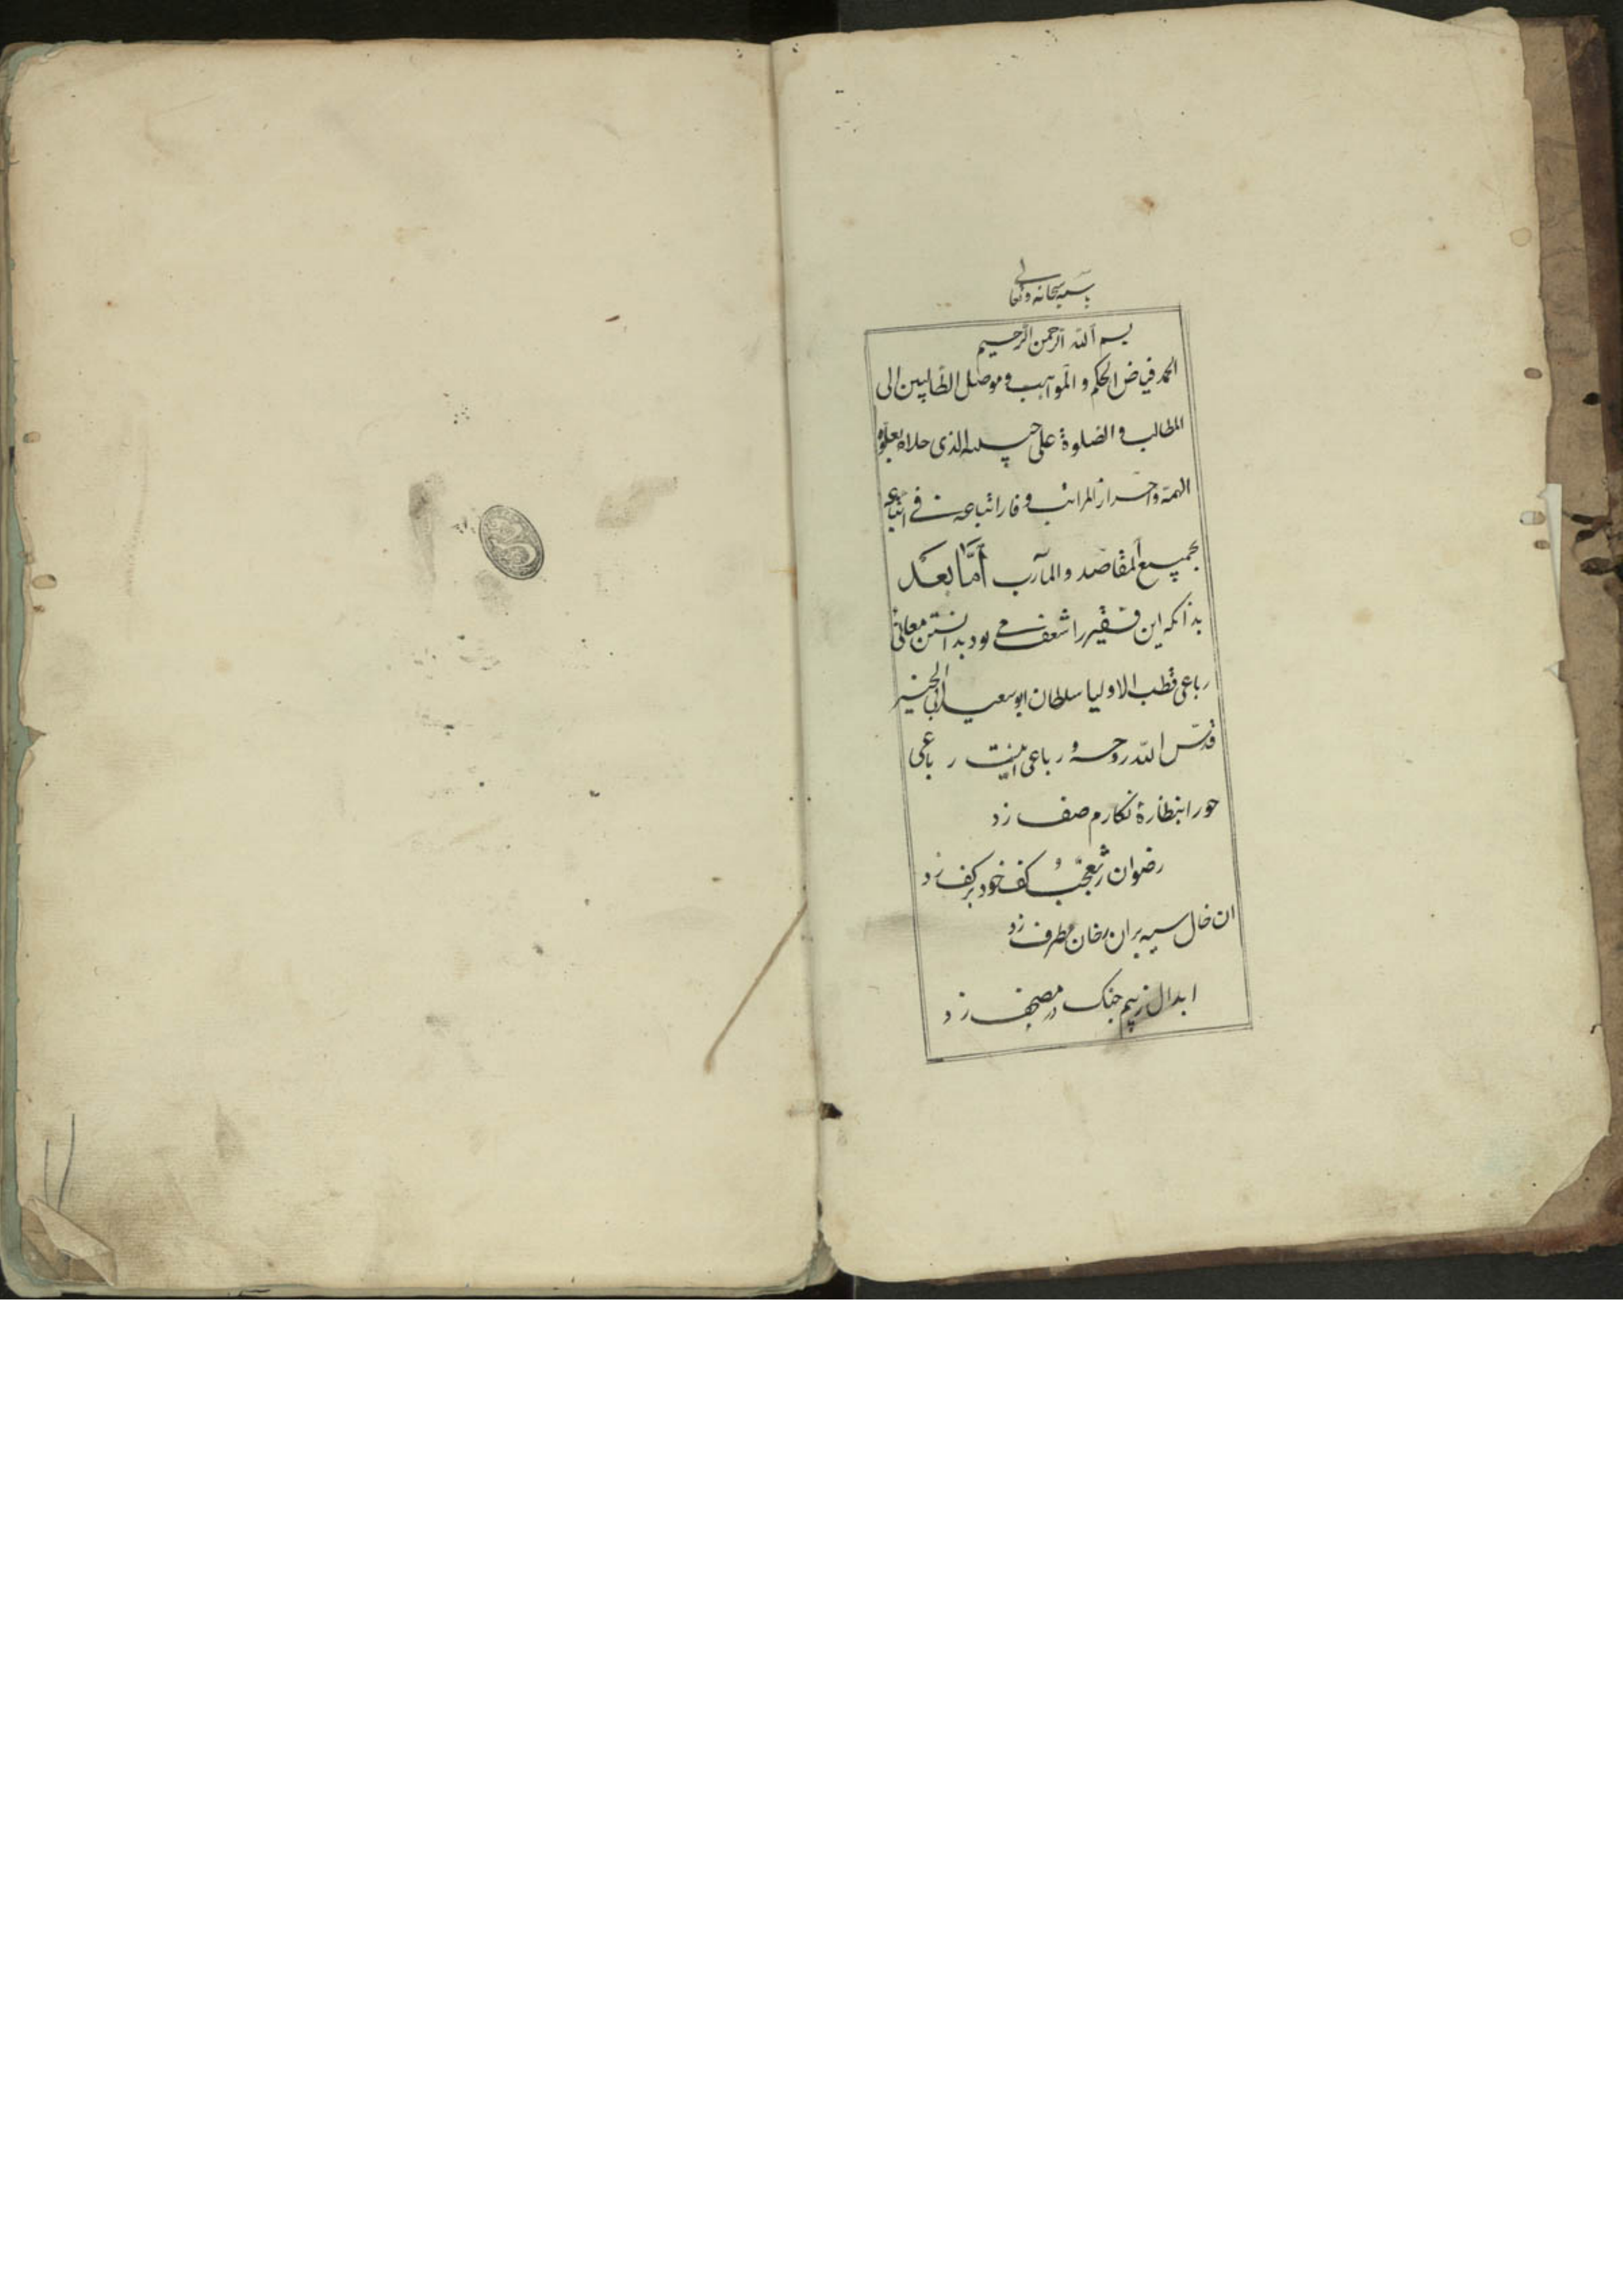 باسمه سبحانه وتعالی
بسم الله الرحمن الرحیم
الحمد فیاض الحکم و المواهب و موصل الطالبین الی
المطالب و الصلوة علی حبیبه الذی حلاه بعلوّ
الهمة و احراز المراتب و فاز اتباعه فی اتباعه
بجمیع المقاصد و المآرب امّا بعد
بدانکه این فقیر را شعفی می بود بدانستن معانی
رباعی قطب الاولیا سلطان ابو سعید ابی الخیر
قدّس الله روحه و رباعی اینست رباعی
حورا بنظارهٔ نکارم صف زد
رضوان ز تعجّب کف خود بر کف زد
ان خال سیه بران رخان مطرف زد
ابدال ز بیم چنک در مصحف زد